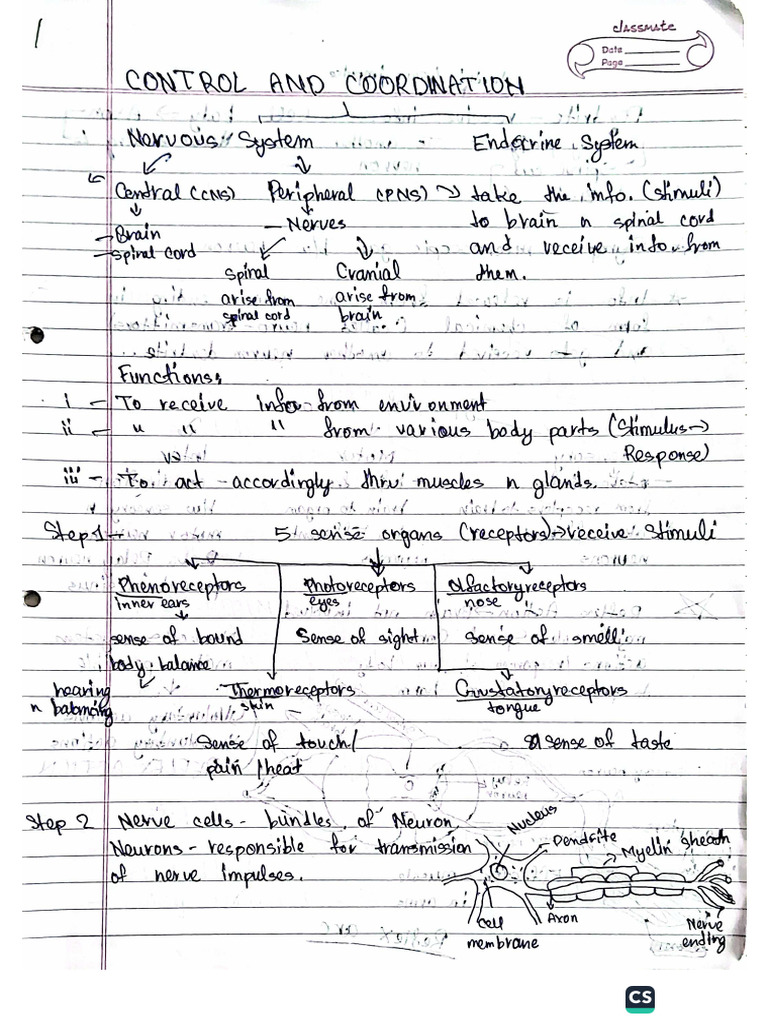 1
classmate
Date
Page
CONTROL AND COORDINATION
Nervous System Endocrine System
Central (CNS) Peripheral (PNS) → take the info. (stimuli)
- Brain - Nerves to brain n spinal cord
- spinal cord and receive info from
Spinal Cranial them.
arise from arise from
spinal cord brain
Functions:
i - To receive info from environment
ii - " " " from various body parts (Stimulus →
Response)
iii - To act accordingly thru muscles n glands.
Step 1 - 5 sense organs (receptors) → receive stimuli
Phenoreceptors Photoreceptors Olfactoryreceptors
inner ears eyes nose
sense of bound Sense of sight sense of smell
body balance
hearing Thermoreceptors Grustatoryreceptors
n balancing skin tongue
sense of touch/ sense of taste
pain / heat
Step 2 Nerve cells - bundles of Neuron Nucleus
Neurons - responsible for transmission Dendrite Myelin sheath
of nerve impulses.
Cell Axon Nerve
membrane ending
CS